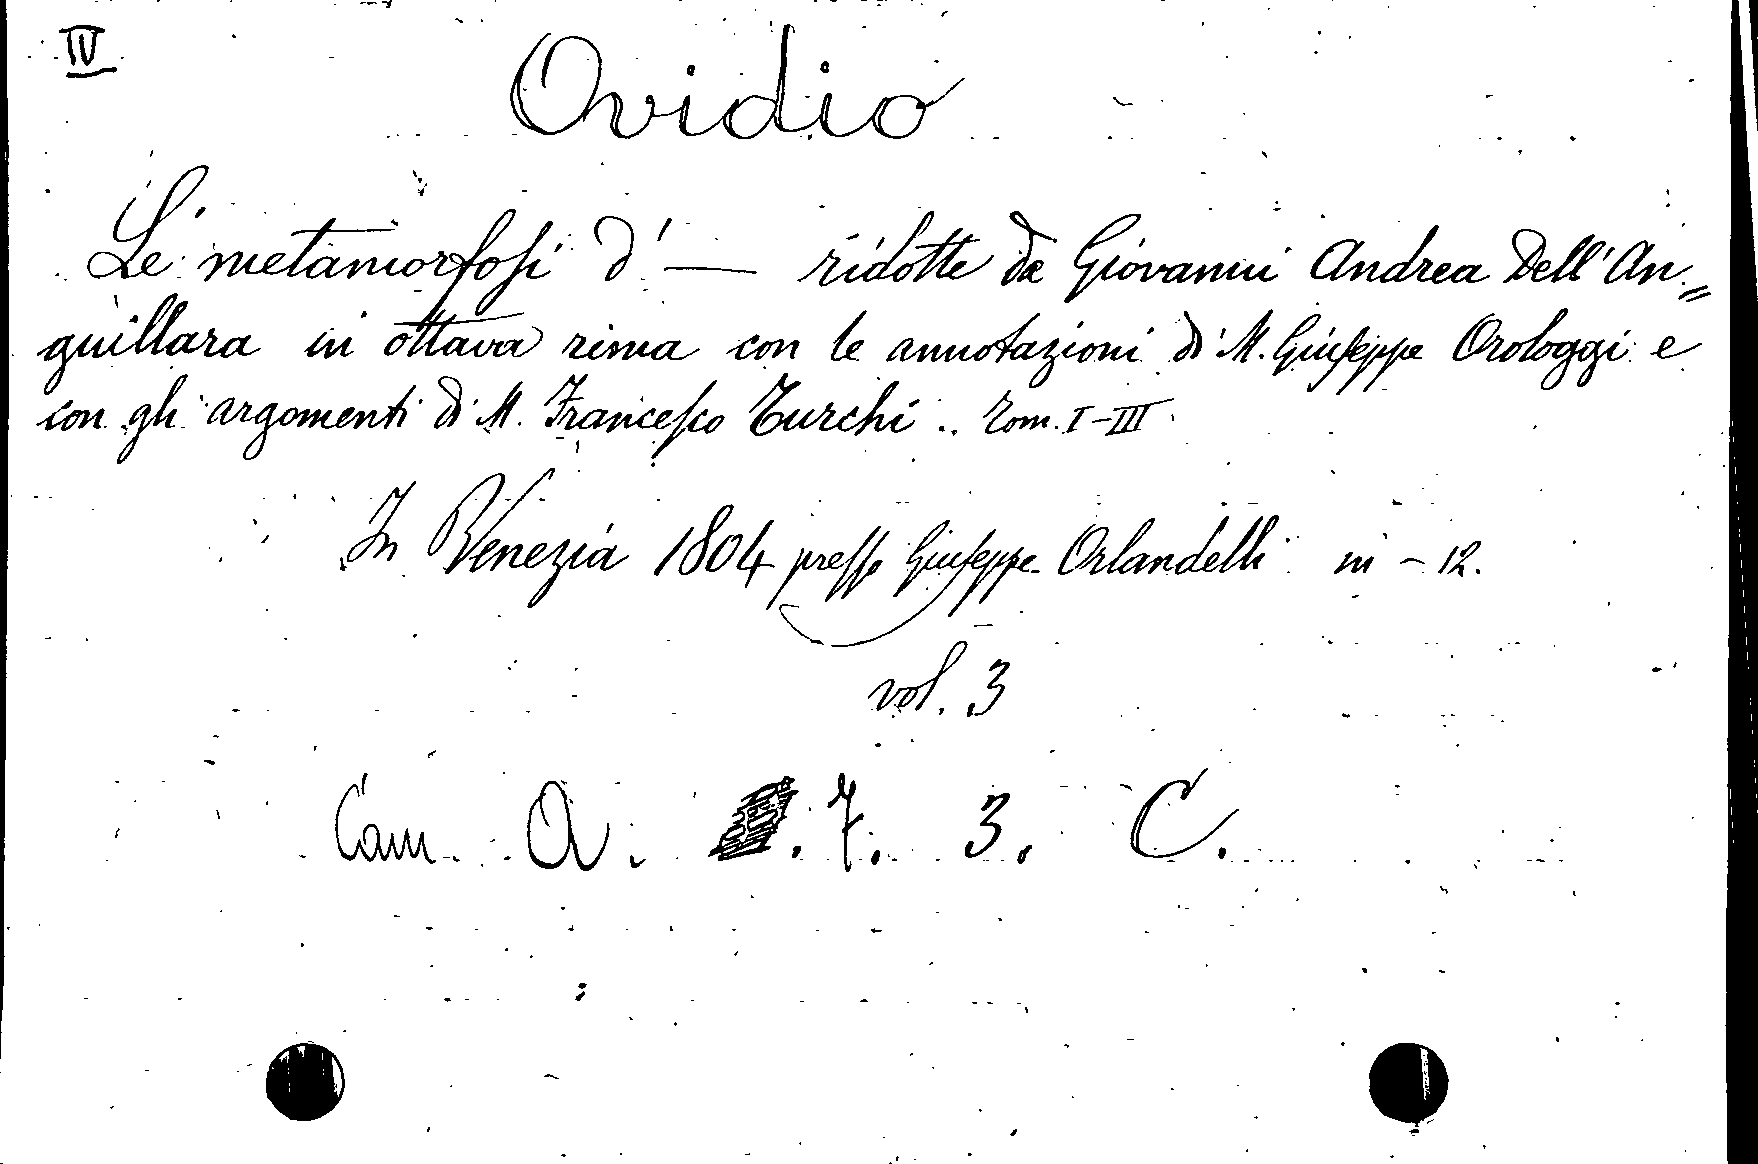 IV
Ovidio
Le metamorfosi d' — ridotte da Giovanni Andrea Dell'An=
guillara in ottava rima con le annotazioni di M. Giuseppe Orologgi e
con gli argomenti di M. Francesco Turchi .. Tom. I-III
In Venezia 1804 presso Giuseppe Orlandelli in - 12.
vol. 3
Cam A. . 7. 3. C.